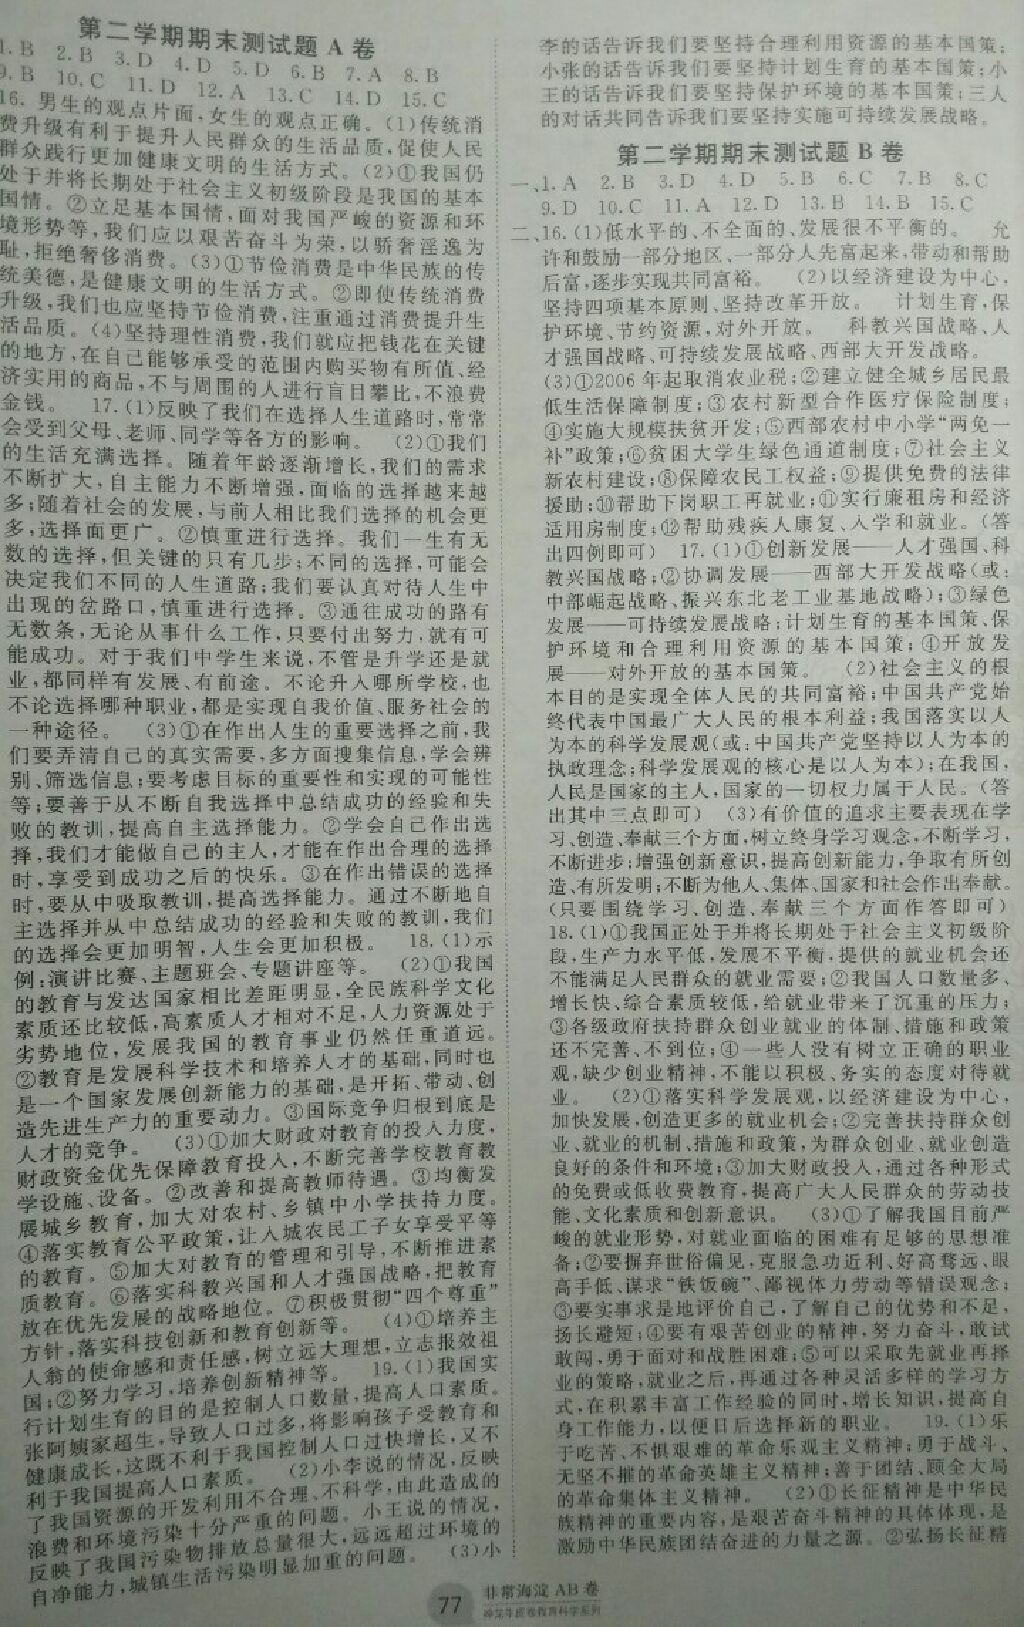 第二学期期末测试题 A 卷
1. B 2. B 3. D 4. D 5. D 6. B 7. A 8. B
9. B 10. C 11. D 12. A 13. C 14. D 15. C
16. 男生的观点片面,女生的观点正确。(1)传统消
费升级有利于提升人民群众的生活品质,促使人民
群众践行更加健康文明的生活方式。(2)①我国仍
处于并将长期处于社会主义初级阶段是我国的基本
国情。②立足基本国情,面对我国严峻的资源和环
境形势等,我们应以艰苦奋斗为荣,以骄奢淫逸为
耻,拒绝奢侈消费。(3)①节俭消费是中华民族的传
统美德,是健康文明的生活方式。②即使传统消费
升级,我们也应坚持节俭消费,注重通过消费提升生
活品质。(4)坚持理性消费,我们就应把钱花在关键
的地方,在自己能够承受的范围内购买物有所值、经
济实用的商品,不与周围的人进行盲目攀比,不浪费
金钱。 17. (1)反映了我们在选择人生道路时,常常
会受到父母、老师、同学等各方的影响。 (2)①我们
的生活充满选择。随着年龄逐渐增长,我们的需求
不断扩大,自主能力不断增强,面临的选择越来越
多;随着社会的发展,与前人相比我们选择的机会更
多,选择面更广。②慎重进行选择。我们一生有无
数的选择,但关键的只有几步;不同的选择,可能会
决定我们不同的人生道路;我们要认真对待人生中
出现的岔路口,慎重进行选择。③通往成功的路有
无数条,无论从事什么工作,只要付出努力,就有可
能成功。对于我们中学生来说,不管是升学还是就
业,都同样有发展、有前途。不论升入哪所学校,也
不论选择哪种职业,都是实现自我价值、服务社会的
一种途径。 (3)①在作出人生的重要选择之前,我
们要弄清自己的真实需要,多方面搜集信息,学会辨
别、筛选信息;要考虑目标的重要性和实现的可能性
等;要善于从不断自我选择中总结成功的经验和失
败的教训,提高自主选择能力。②学会自己作出选
择,我们才能做自己的主人,才能在作出合理的选择
时,享受到成功之后的快乐。③在作出错误的选择
时,要从中吸取教训,提高选择能力。通过不断地自
主选择并从中总结成功的经验和失败的教训,我们
的选择会更加明智,人生会更加积极。 18. (1)示
例:演讲比赛、主题班会、专题讲座等。 (2)①我国
的教育与发达国家相比差距明显,全民族科学文化
素质还比较低,高素质人才相对不足,人力资源处于
劣势地位,发展我国的教育事业仍然任重道远。
②教育是发展科学技术和培养人才的基础,同时也
是一个国家发展创新能力的基础,是开拓、带动、创
造先进生产力的重要动力。③国际竞争归根到底是
人才的竞争。 (3)①加大财政对教育的投入力度,
财政资金优先保障教育投入,不断完善学校教育教
学设施、设备。②改善和提高教师待遇。③均衡发
展城乡教育,加大对农村、乡镇中小学扶持力度。
④落实教育公平政策,让入城农民工子女享受平等
的教育。⑤加大对教育的管理和引导,不断推进素
质教育。⑥落实科教兴国和人才强国战略,把教育
放在优先发展的战略地位。⑦积极贯彻“四个尊重”
方针,落实科技创新和教育创新等。 (4)①培养主
人翁的使命感和责任感,树立远大理想,立志报效祖
国;②努力学习,培养创新精神等。 19. (1)我国实
行计划生育的目的是控制人口数量,提高人口素质。
张阿姨家超生,导致人口过多,将影响孩子受教育和
健康成长,这既不利于我国控制人口过快增长,又不
利于我国提高人口素质。 (2)小李说的情况,反映
了我国资源的开发利用不合理、不科学,由此造成的
浪费和环境污染十分严重的问题。小王说的情况,
反映了我国污染物排放总量很大,远远超过环境的
自净能力,城镇生活污染明显加重的问题。 (3)小
李的话告诉我们要坚持合理利用资源的基本国策;
小张的话告诉我们要坚持计划生育的基本国策;小
王的话告诉我们要坚持保护环境的基本国策;三人
的对话共同告诉我们要坚持实施可持续发展战略。
第二学期期末测试题 B 卷
一、1. A 2. B 3. D 4. D 5. B 6. C 7. B 8. C
9. D 10. C 11. A 12. D 13. B 14. B 15. C
二、16. (1)低水平的、不全面的、发展很不平衡的。 允
许和鼓励一部分地区、一部分人先富起来,带动和帮助
后富,逐步实现共同富裕。 (2)以经济建设为中心,
坚持四项基本原则、坚持改革开放。 计划生育,保
护环境、节约资源,对外开放。 科教兴国战略、人
才强国战略、可持续发展战略、西部大开发战略。
(3)①2006 年起取消农业税;②建立健全城乡居民最
低生活保障制度;③农村新型合作医疗保险制度;
④实施大规模扶贫开发;⑤西部农村中小学“两免一
补”政策;⑥贫困大学生绿色通道制度;⑦社会主义
新农村建设;⑧保障农民工权益;⑨提供免费的法律
援助;⑩帮助下岗职工再就业;⑪实行廉租房和经济
适用房制度;⑫帮助残疾人康复、入学和就业。(答
出四例即可) 17. (1)①创新发展——人才强国、科
教兴国战略;②协调发展——西部大开发战略(或:
中部崛起战略、振兴东北老工业基地战略);③绿色
发展——可持续发展战略;计划生育的基本国策、保
护环境和合理利用资源的基本国策;④开放发
展——对外开放的基本国策。 (2)社会主义的根
本目的是实现全体人民的共同富裕;中国共产党始
终代表中国最广大人民的根本利益;我国落实以人
为本的科学发展观(或:中国共产党坚持以人为本的
执政理念;科学发展观的核心是以人为本);在我国,
人民是国家的主人,国家的一切权力属于人民。(答
出其中三点即可) (3)有价值的追求主要表现在学
习、创造、奉献三个方面,树立终身学习观念,不断学习,
不断进步;增强创新意识,提高创新能力,争取有所创
造、有所发明;不断为他人、集体、国家和社会作出奉献。
(只要围绕学习、创造、奉献三个方面作答即可)
18. (1)①我国正处于并将长期处于社会主义初级阶
段,生产力水平低,发展不平衡,提供的就业机会还
不能满足人民群众的就业需要;②我国人口数量多、
增长快、综合素质较低,给就业带来了沉重的压力;
③各级政府扶持群众创业就业的体制、措施和政策
还不完善、不到位;④一些人没有树立正确的职业
观,缺少创业精神,不能以积极、务实的态度对待就
业。 (2)①落实科学发展观,以经济建设为中心,
加快发展,创造更多的就业机会;②完善扶持群众创
业、就业的机制、措施和政策,为群众创业、就业创造
良好的条件和环境;③加大财政投入,通过各种形式
的免费或低收费教育,提高广大人民群众的劳动技
能、文化素质和创新意识。 (3)①了解我国目前严
峻的就业形势,对就业面临的困难有足够的思想准
备;②要摒弃世俗偏见,克服急功近利、好高骛远、眼
高手低、谋求“铁饭碗”、鄙视体力劳动等错误观念;
③要实事求是地评价自己,了解自己的优势和不足,
扬长避短;④要有艰苦创业的精神,努力奋斗,敢试
敢闯,勇于面对和战胜困难;⑤可以采取先就业再择
业的策略,就业之后,再通过各种灵活多样的学习方
式,在积累丰富工作经验的同时,增长知识,提高自
身工作能力,以便日后选择新的职业。 19. (1)乐
于吃苦、不惧艰难的革命乐观主义精神;勇于战斗、
无坚不摧的革命英雄主义精神;善于团结、顾全大局
的革命集体主义精神。 (2)①长征精神是中华民
族精神的重要内容,是艰苦奋斗精神的具体体现,是
激励中华民族团结奋进的力量之源。②弘扬长征精
77 非常海淀 AB 卷